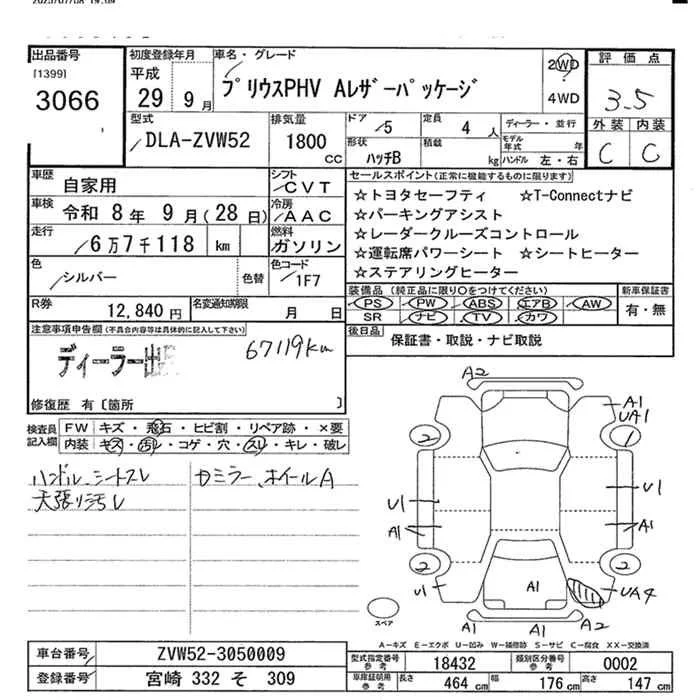 2025/07/08 19:09
出品番号
[1399]
3066
初度登録年月
平成
29 9 月
車名・グレード
プリウスPHV Aレザーパッケージ
2WD
4WD
評価点
3.5
外装 内装
C C
型式
DLA-ZVW52
排気量
1800
CC
ドア
5
形状
ハッチB
定員
4 人
積載
kg
ディーラー・並行
モデル年式 年
ハンドル 左・右
車歴
自家用
シフト
CVT
車検
令和 8 年 9 月 (28 日)
冷房
AAC
走行
6 万 7 千 118 km
燃料
ガソリン
色
シルバー
色替
色コード
1F7
R券
12,840 円
名変通知期限
月 日
セールスポイント(正常に機能するものに限ります)
☆トヨタセーフティ ☆T-Connectナビ
☆パーキングアシスト
☆レーダークルーズコントロール
☆運転席パワーシート ☆シートヒーター
☆ステアリングヒーター
装備品 (純正品に限り〇をつけてください)
PS PW ABS エアB AW
SR ナビ TV カワ
新車保証書
有・無
後日品
保証書・取説・ナビ取説
注意事項申告欄(不具合内容等は具体的に記入して下さい)
ディーラー出
67119km
修復歴 有〔箇所 〕
検査員記入欄
FW キズ・飛石・ヒビ割・リペア跡・×要
内装 キズ・汚れ・コゲ・穴・スレ・キレ・破レ
ハンドル、シートスレ
天張り汚レ
カミラー、ホイールA
A2
A1
UA1
2
1
U1
U1
A1
A1
2
2
U1
A1
UA4
スペア
A1 A1 A2
A-キズ E-エクボ U-凹み W-補修跡 S-サビ C-腐食 XX-交換済
車台番号
ZVW52-3050009
登録番号
宮崎 332 そ 309
型式指定番号 参考
18432
類別区分番号 参考
0002
車庫証明用 参考
長さ 464 cm
幅 176 cm
高さ 147 cm